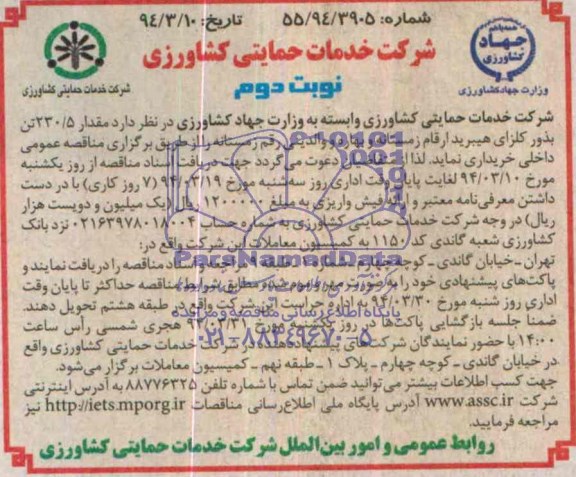 شماره: ۵۵/۹۴/۳۹۰۵ تاریخ: ۹۴/۳/۱۰
جهاد
کشاورزی
وزارت جهاد کشاورزی
شرکت خدمات حمایتی کشاورزی
شرکت خدمات حمایتی کشاورزی
نوبت دوم
شرکت خدمات حمایتی کشاورزی وابسته به وزارت جهاد کشاورزی در نظر دارد مقدار ۲۳۰/۵تن
بذور کلزای هیبرید ارقام زمستانه و بهاره و والدینی رقم زمستانه را از طریق برگزاری مناقصه عمومی
داخلی خریداری نماید. لذا از متقاضیان دعوت می گردد جهت دریافت اسناد مناقصه از روز یکشنبه
مورخ ۹۴/۰۳/۱۰ لغایت پایان وقت اداری روز سه شنبه مورخ ۹۴/۰۳/۱۹ (۷ روز کاری) با در دست
داشتن معرفی‌نامه معتبر و ارائه فیش واریزی به مبلغ ریال (یک میلیون و دویست هزار
ریال) در وجه شرکت خدمات حمایتی کشاورزی به شماره حساب نزد بانک
کشاورزی شعبه گاندی کد ۱۱۵۰ به کمیسیون معاملات این شرکت واقع در:
تهران ـ خیابان گاندی ـ کوچه چهارم مراجعه و اسناد مناقصه را دریافت نمایند و
پاکت‌های پیشنهادی خود را به صورت مهر و موم شده مطابق شرایط مناقصه حداکثر تا پایان وقت
اداری روز شنبه مورخ ۹۴/۰۳/۳۰ به اداره حراست این شرکت واقع در طبقه هشتم تحویل دهند.
ضمناً جلسه بازگشایی پاکت‌ها در روز یکشنبه مورخ ۹۴/۰۳/۳۱ هجری شمسی رأس ساعت
۱۴:۰۰ با حضور نمایندگان شرکت‌های پیشنهاددهنده در شرکت خدمات حمایتی کشاورزی واقع
در خیابان گاندی ـ کوچه چهارم ـ پلاک ۱ ـ طبقه نهم ـ کمیسیون معاملات برگزار می‌شود.
جهت کسب اطلاعات بیشتر می‌توانید ضمن تماس با شماره تلفن ۸۸۷۷۶۳۲۵ به آدرس اینترنتی
شرکت www.assc.ir آدرس پایگاه ملی اطلاع‌رسانی مناقصات http://iets.mporg.ir نیز
مراجعه فرمایید.
روابط عمومی و امور بین‌الملل شرکت خدمات حمایتی کشاورزی
ParsNamadData
پایگاه اطلاع رسانی مناقصه و مزایده
۰۲۱-۸۸۳۴۹۶۷۰-۵